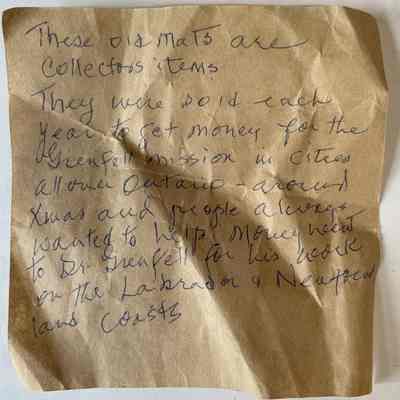 These old mats are
Collectors items
They were sold each
year to get money for the
Grenfell mission in cities
all over Ontario - around
Xmas and people always
wanted to help. Money went
to Dr. Grenfell for his work
on the Labrador & Newfound
land coasts